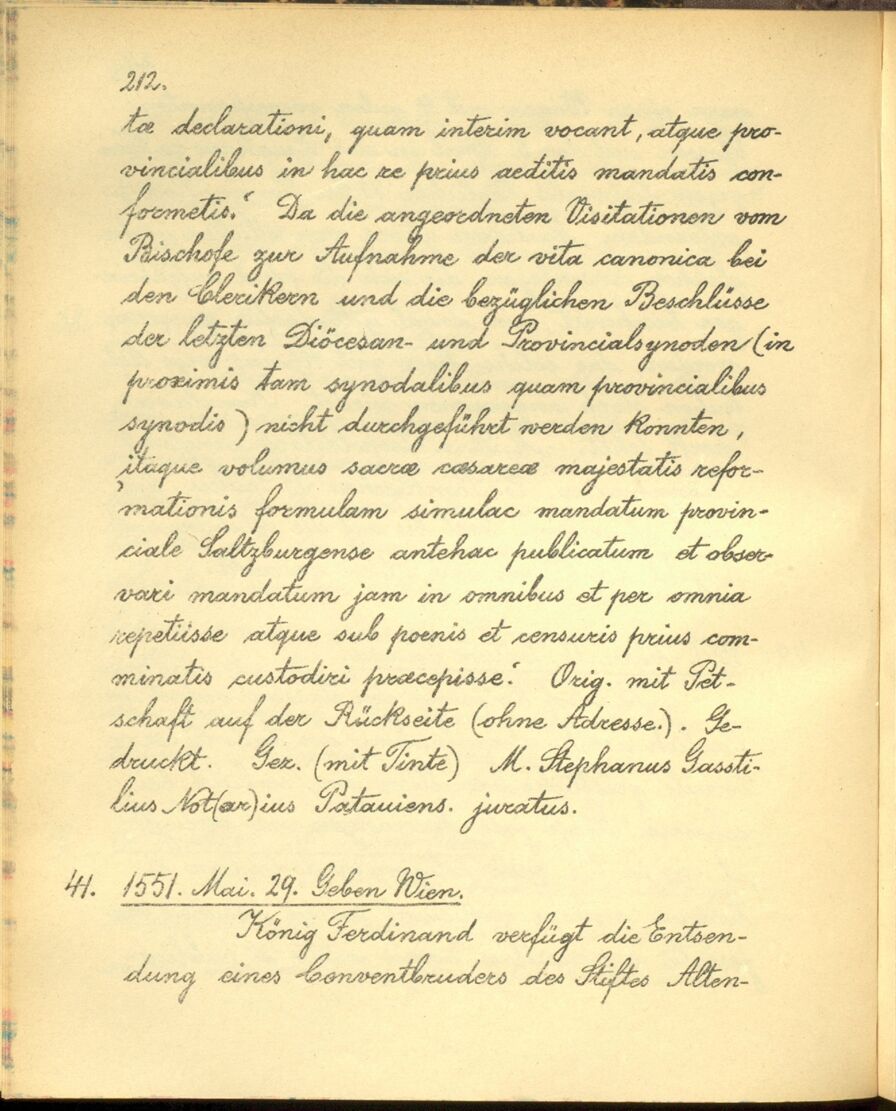 212.
tæ declarationi, quam interim vocant, atque pro-
vincialibus in hac re prius aeditis mandatis con-
formetis.“ Da die angeordneten Visitationen vom
Bischofe zur Aufnahme der vita canonica bei
den Clerikern und die bezüglichen Beschlüsse
der letzten Diöcesan- und Provincialsynoden (in
proximis tam synodalibus quam provincialibus
synodis) nicht durchgeführt werden konnten,
„itaque volumus sacræ cæsareæ majestatis refor-
mationis formulam simulac mandatum provin-
ciale Saltzburgense antehac publicatum et obser-
vari mandatum jam in omnibus et per omnia
repetiisse atque sub poenis et censuris prius com-
minatis custodiri præcepisse.“ Orig. mit Pet-
schaft auf der Rückseite (ohne Adresse.). Ge-
druckt. Gez. (mit Tinte) M. Stephanus Gassti-
lius Not(ar)ius Patauiens. juratus.
41. 1551. Mai. 29. Geben Wien.
König Ferdinand verfügt die Entsen-
dung eines Conventbruders des Stiftes Alten-